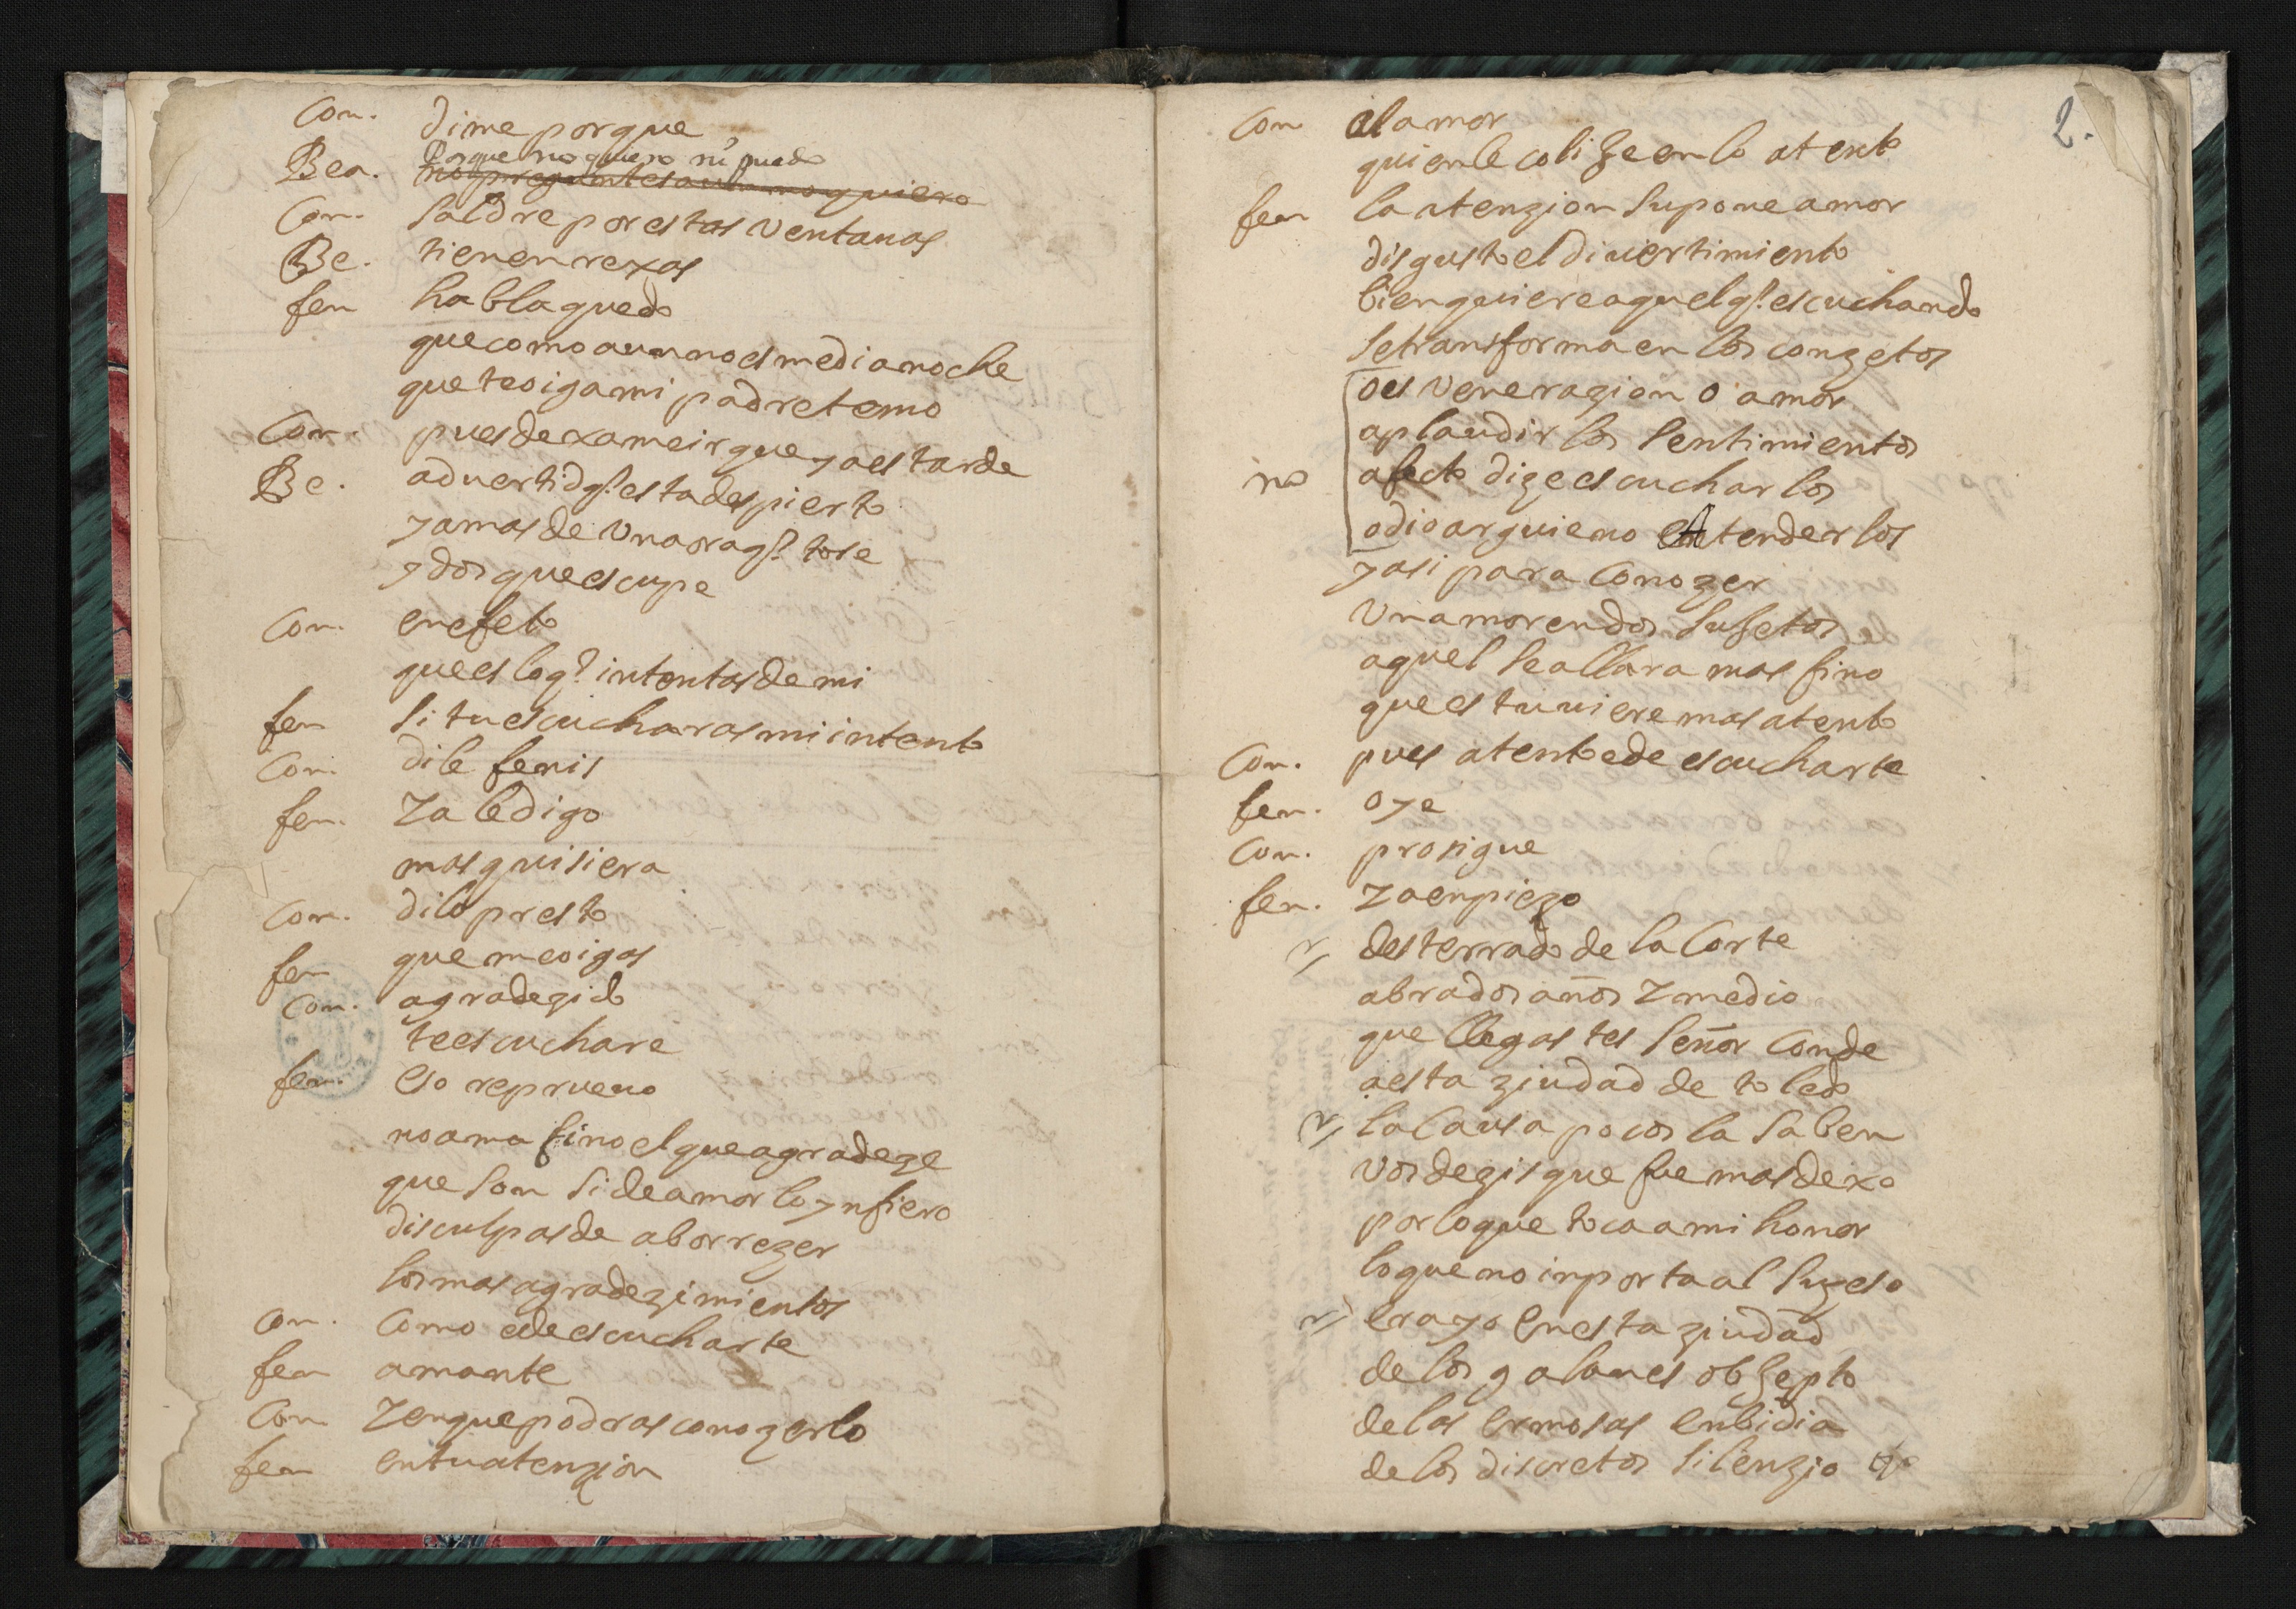 Con. dime porque
Bea. Porque no quiero ni puedo
no preguntes aun no quiero
Con. saldre por estas ventanas
Be. tienen rexas
fen habla quedo
que como aun no es media noche
que te oiga mi padre temo
Con. pues dexame ir que ya es tarde
Be. aduertid q? esta despierto
y a mas de vna ora q? tose
y dos que escupe
Con. en efeto
que es lo q? intentas de mi
fen si tu escucharas mi intento
Con. dile fenis
fen. Ya le digo
mas quisiera
Con. dilo presto
fen que me oigas
Con. agradezido
te escuchare
fen. eso reprueuo
no ama fino el que agradeze
que son si de amor lo ynfiero
disculpas de aborrezer
los mas agradezimientos
Con. Como e de escucharte
fen amante
Con Y en que podras conozerlo
fen en tu atenzion
2.
Con al amor
quien le colije en lo atento
fen la atenzion supone amor
disgusto el diuertimiento
bien quiere aquel q? escuchando
se transforma en los conzetos
o es venerazion o amor
aplaudir los sentimientos
no afecto dize escucharlos
odio arguie no atenderlos
y asi para Conozer
vn amor en dos sujetos
aquel se allara mas fino
que estuuiere mas atento
Con. pues atento e de escucharte
fen. oye
Con. prosigue
fen. Ya enpiezo
desterrado de la Corte
abra dos años Y medio
que llegastes señor Conde
a esta ziudad de toledo
la Causa pocos la saben
vos dezis que fue mas dexo
por lo que toca a mi honor
lo que no inporta al suzeso
era yo en esta ziudad
de los galanes objepto
de las ermosas enbidia
de los discretos silenzio